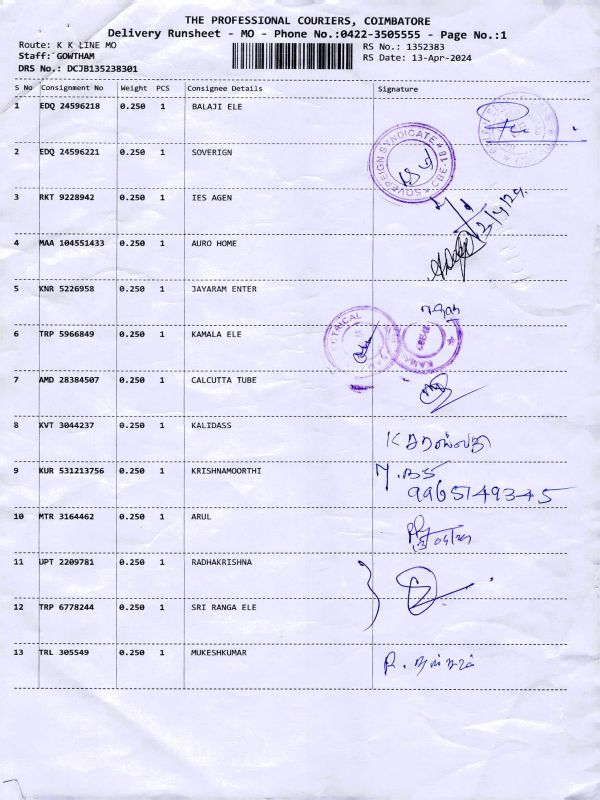 THE PROFESSIONAL COURIERS, COIMBATORE
Delivery Runsheet - MO - Phone No.:0422-3505555 - Page No.:1
Route: K K LINE MO
RS No.: 1352383
Staff: GOWTHAM
RS Date: 13-Apr-2024
DRS No.: DCJB135238301
S No Consignment No Weight PCS Consignee Details Signature
1 EDQ 24596218 0.250 1 BALAJI ELE
2 EDQ 24596221 0.250 1 SOVERIGN
SOVEREIGN SYNDICATE ★ CBE-18 ★
3 RKT 9228942 0.250 1 IES AGEN
4 MAA 104551433 0.250 1 AURO HOME
5 KNR 5226958 0.250 1 JAYARAM ENTER
6 TRP 5966849 0.250 1 KAMALA ELE
7 AMD 28384507 0.250 1 CALCUTTA TUBE
8 KVT 3044237 0.250 1 KALIDASS
9 KUR 531213756 0.250 1 KRISHNAMOORTHI
9965149345
10 MTR 3164462 0.250 1 ARUL
11 UPT 2209781 0.250 1 RADHAKRISHNA
12 TRP 6778244 0.250 1 SRI RANGA ELE
13 TRL 305549 0.250 1 MUKESHKUMAR